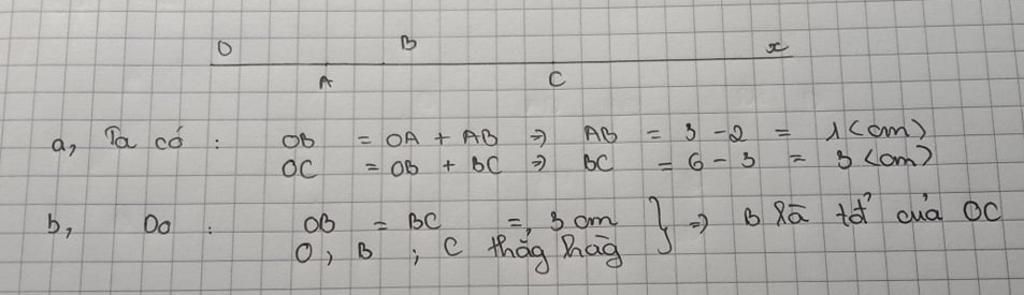 O B x
A C
a, Ta có : OB = OA + AB => AB = 3 - 2 = 1 (cm)
OC = OB + BC => BC = 6 - 3 = 3 (cm)
b, Do : OB = BC = 3 cm } => B là tđ' của OC
O, B ; C thẳg hàg